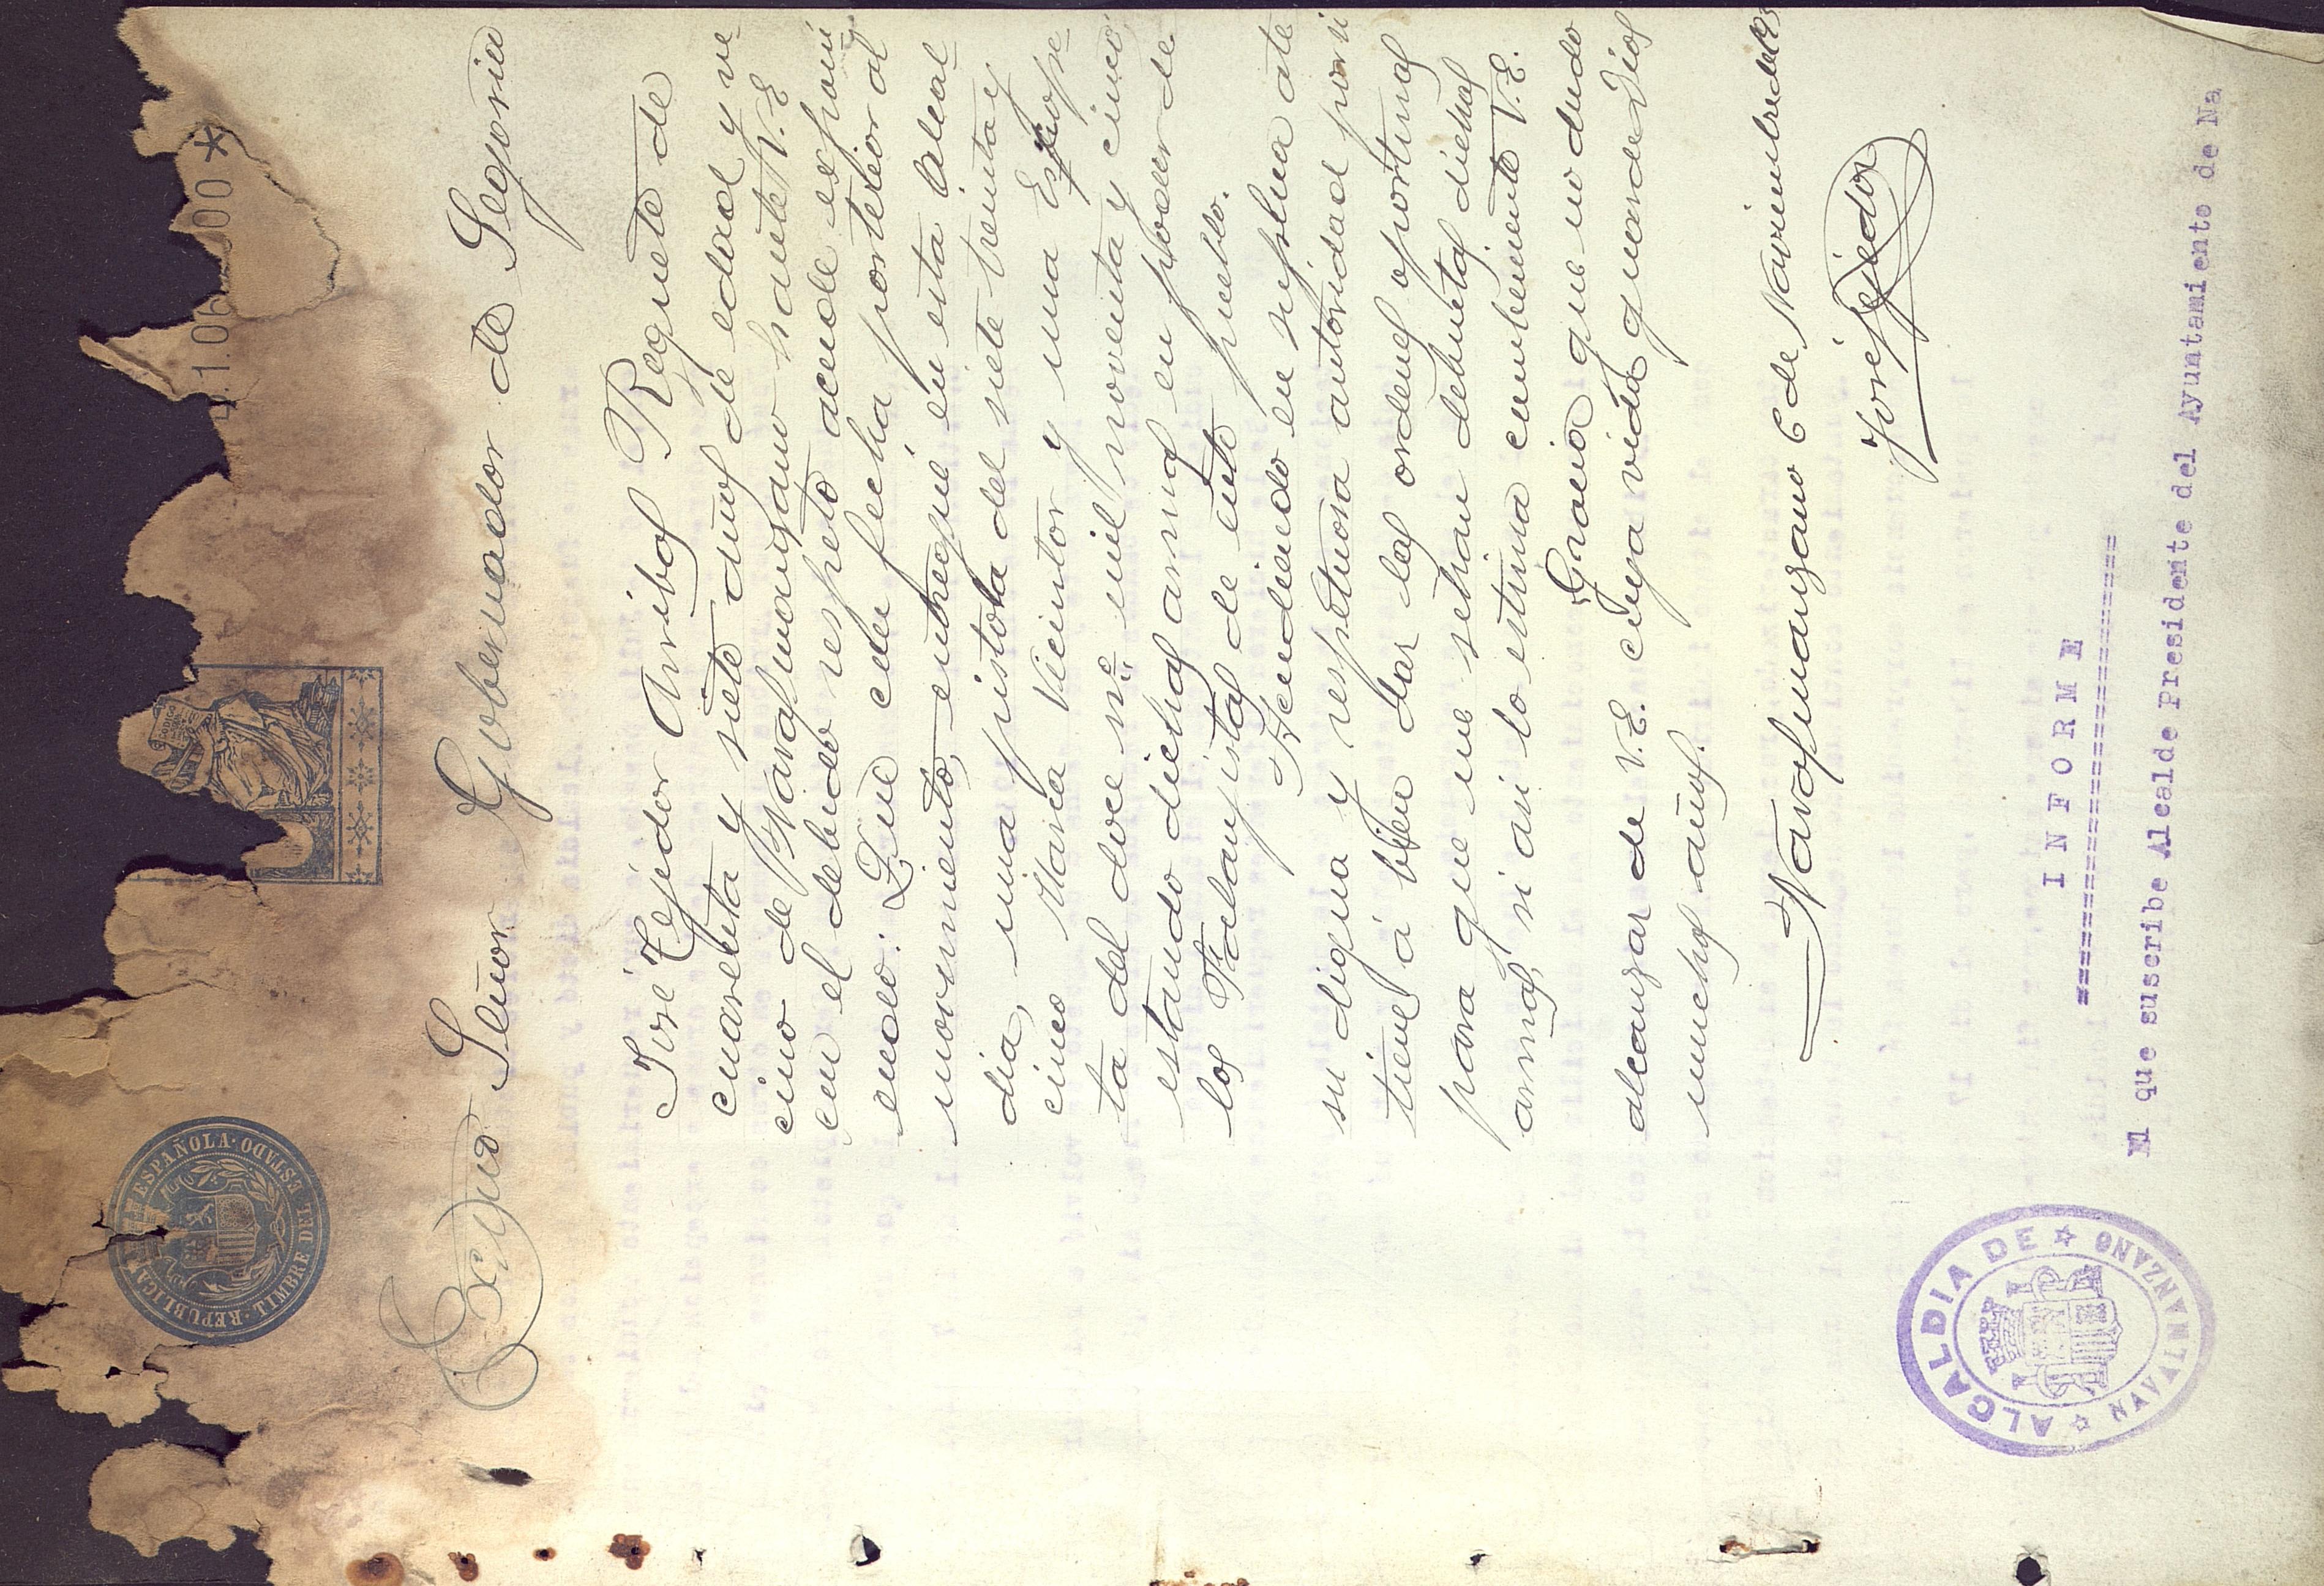 1.06 00 *
REPUBLICA ESPAÑOLA · TIMBRE DEL ESTADO ·
CODIGO
Excmo Señor Gobernador de Segovia
José Tejedor Arribas Requete de
cuarenta y siete años de edad y ve-
cino de Navasmanzano hante V. E
con el debido respeto acude exponi
endo: Que con fecha porterior al
movimiento, entregué en esta Alcal-
dia, una pistola del siete treinta y
cinco Marca Vicintor y una Escope-
ta del doce nº mil noventa y cinco
estando dichas armas en poder de
los Falanjistas de este pueblo.
Atendiendo en suplica ate
su digna y respetuosa autoridad por si
tiene á bien dar las ordenes oportunas
para que me sehan debuetas dichas
armas, si asi lo estima combeniente V. E.
Gracia que no dudo
alcanzar de V. E. cuya vida guarde Dios
muchos años.
Navasmanzano 6 de Noviembre de 193
José Tejedor
I N F O R M E
El que suscribe Alcalde Presidente del Ayuntamiento de Na
ALCALDIA DE
NAVALMANZANO